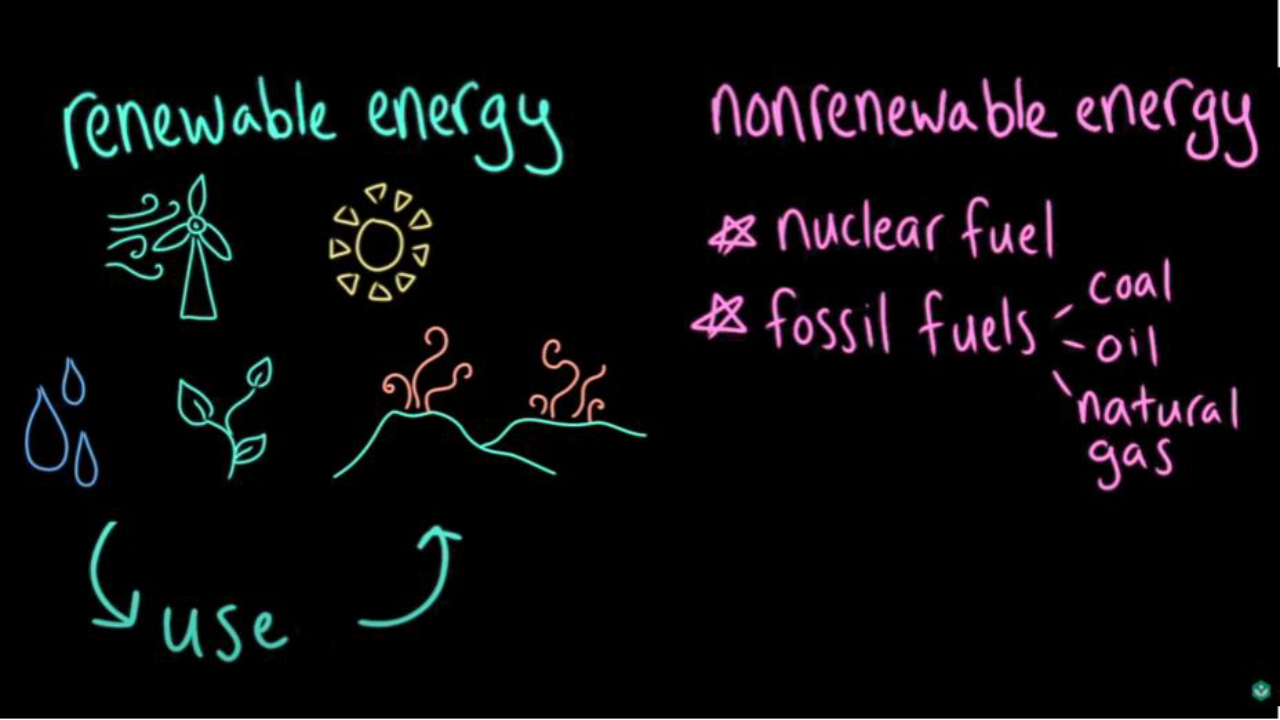 renewable energy
nonrenewable energy
nuclear fuel
fossil fuels
coal
oil
natural
gas
use